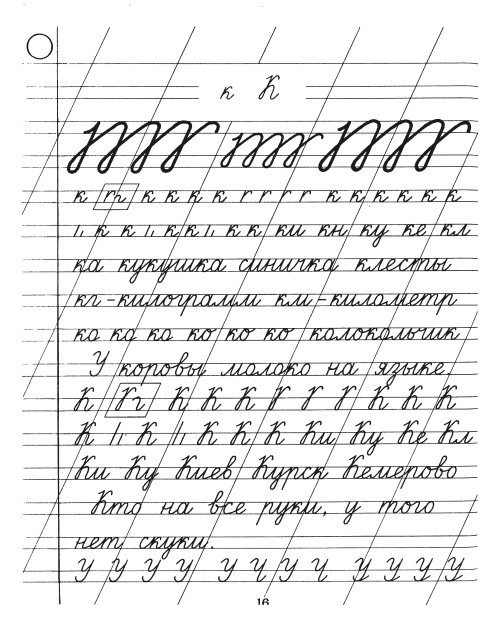 к К
к к к к к к г г г г к к к к к к
к к к к к к ки кн ку ке кл
ка кукушка синичка клесты
кг-килограмм км-километр
ко ко ко ко ко ко колокольчик
У коровы молоко на языке.
К К К К К К К К
К К К К К Ки Ку Ке Кл
Ки Ку Киев Курск Кемерово
Кто на все руки, у того
нет скуки.
У У У У У У У У У У У У
16